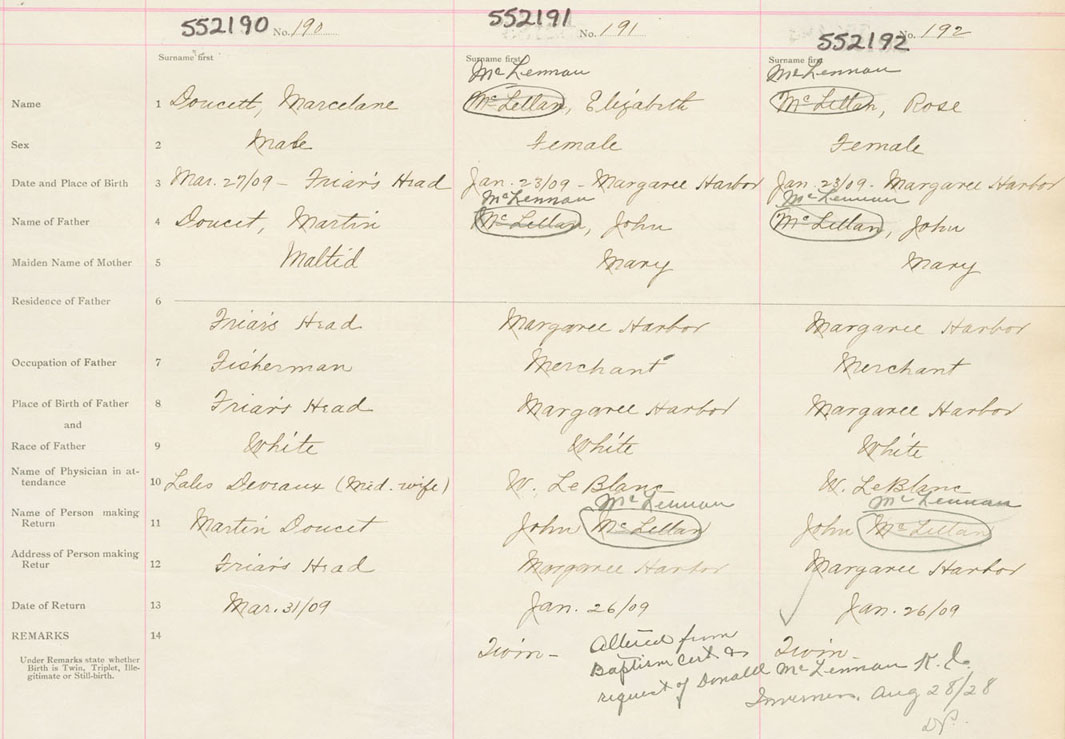 552190 No. 190 552191 No. 191 552192 No. 192
Surname first Surname first Surname first
McLennan McLennan
Name 1 Doucett, Marcelane McLellan, Elizabeth McLellan, Rose
Sex 2 Male Female Female
Date and Place of Birth 3 Mar. 27/09 - Friar's Head Jan. 23/09 - Margaree Harbor Jan. 23/09 - Margaree Harbor
McLennan McLennan
Name of Father 4 Doucet, Martin McLellan, John McLellan, John
Maiden Name of Mother 5 Maltid Mary Mary
Residence of Father 6
Friar's Head Margaree Harbor Margaree Harbor
Occupation of Father 7 Fisherman Merchant Merchant
Place of Birth of Father 8 Friar's Head Margaree Harbor Margaree Harbor
and
Race of Father 9 White White White
Name of Physician in at-
tendance 10 Lales Deveaux (Mid. wife) W. LeBlanc W. LeBlanc
McLennan McLennan
Name of Person making
Return 11 Martin Doucet John McLellan John McLellan
Address of Person making
Retur 12 Friar's Head Margaree Harbor Margaree Harbor
Date of Return 13 Mar. 31/09 Jan. 26/09 Jan. 26/09
REMARKS 14 Twin - Twin
Under Remarks state whether
Birth is Twin, Triplet, Ille-
gitimate or Still-birth.
Altered from
Baptism Cert &
request of Donald McLennan K.C.
Inverness, Aug 28/28